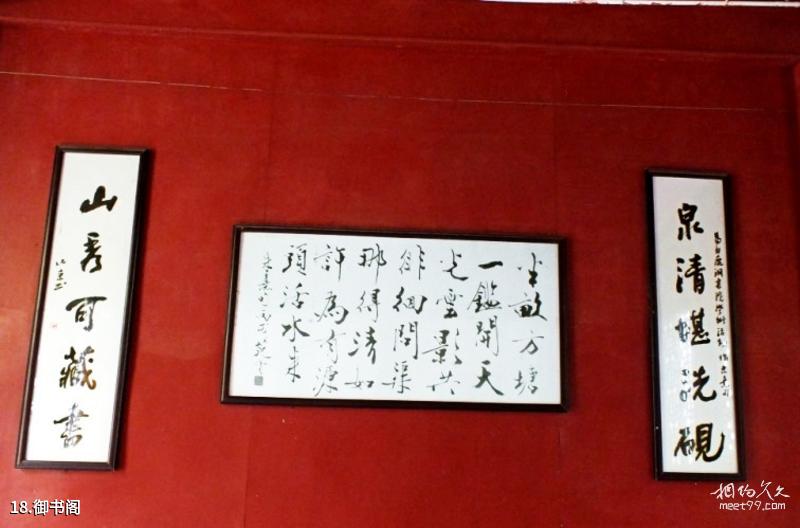 泉清堪洗硯
半畝方塘
一鑑開天
光雲影共
徘徊問渠
那得清如
許為有源
頭活水來
山秀可藏書
18.御书阁
相约久久
meet99.com